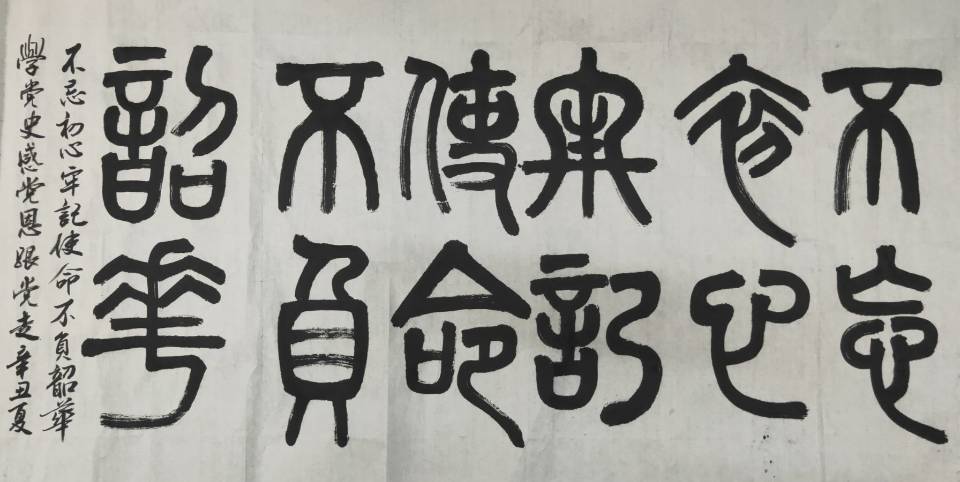 不忘
初心
牢记
使命
不负
韶華
不忘初心牢記使命不負韶華
學党史感党恩跟党走辛丑夏